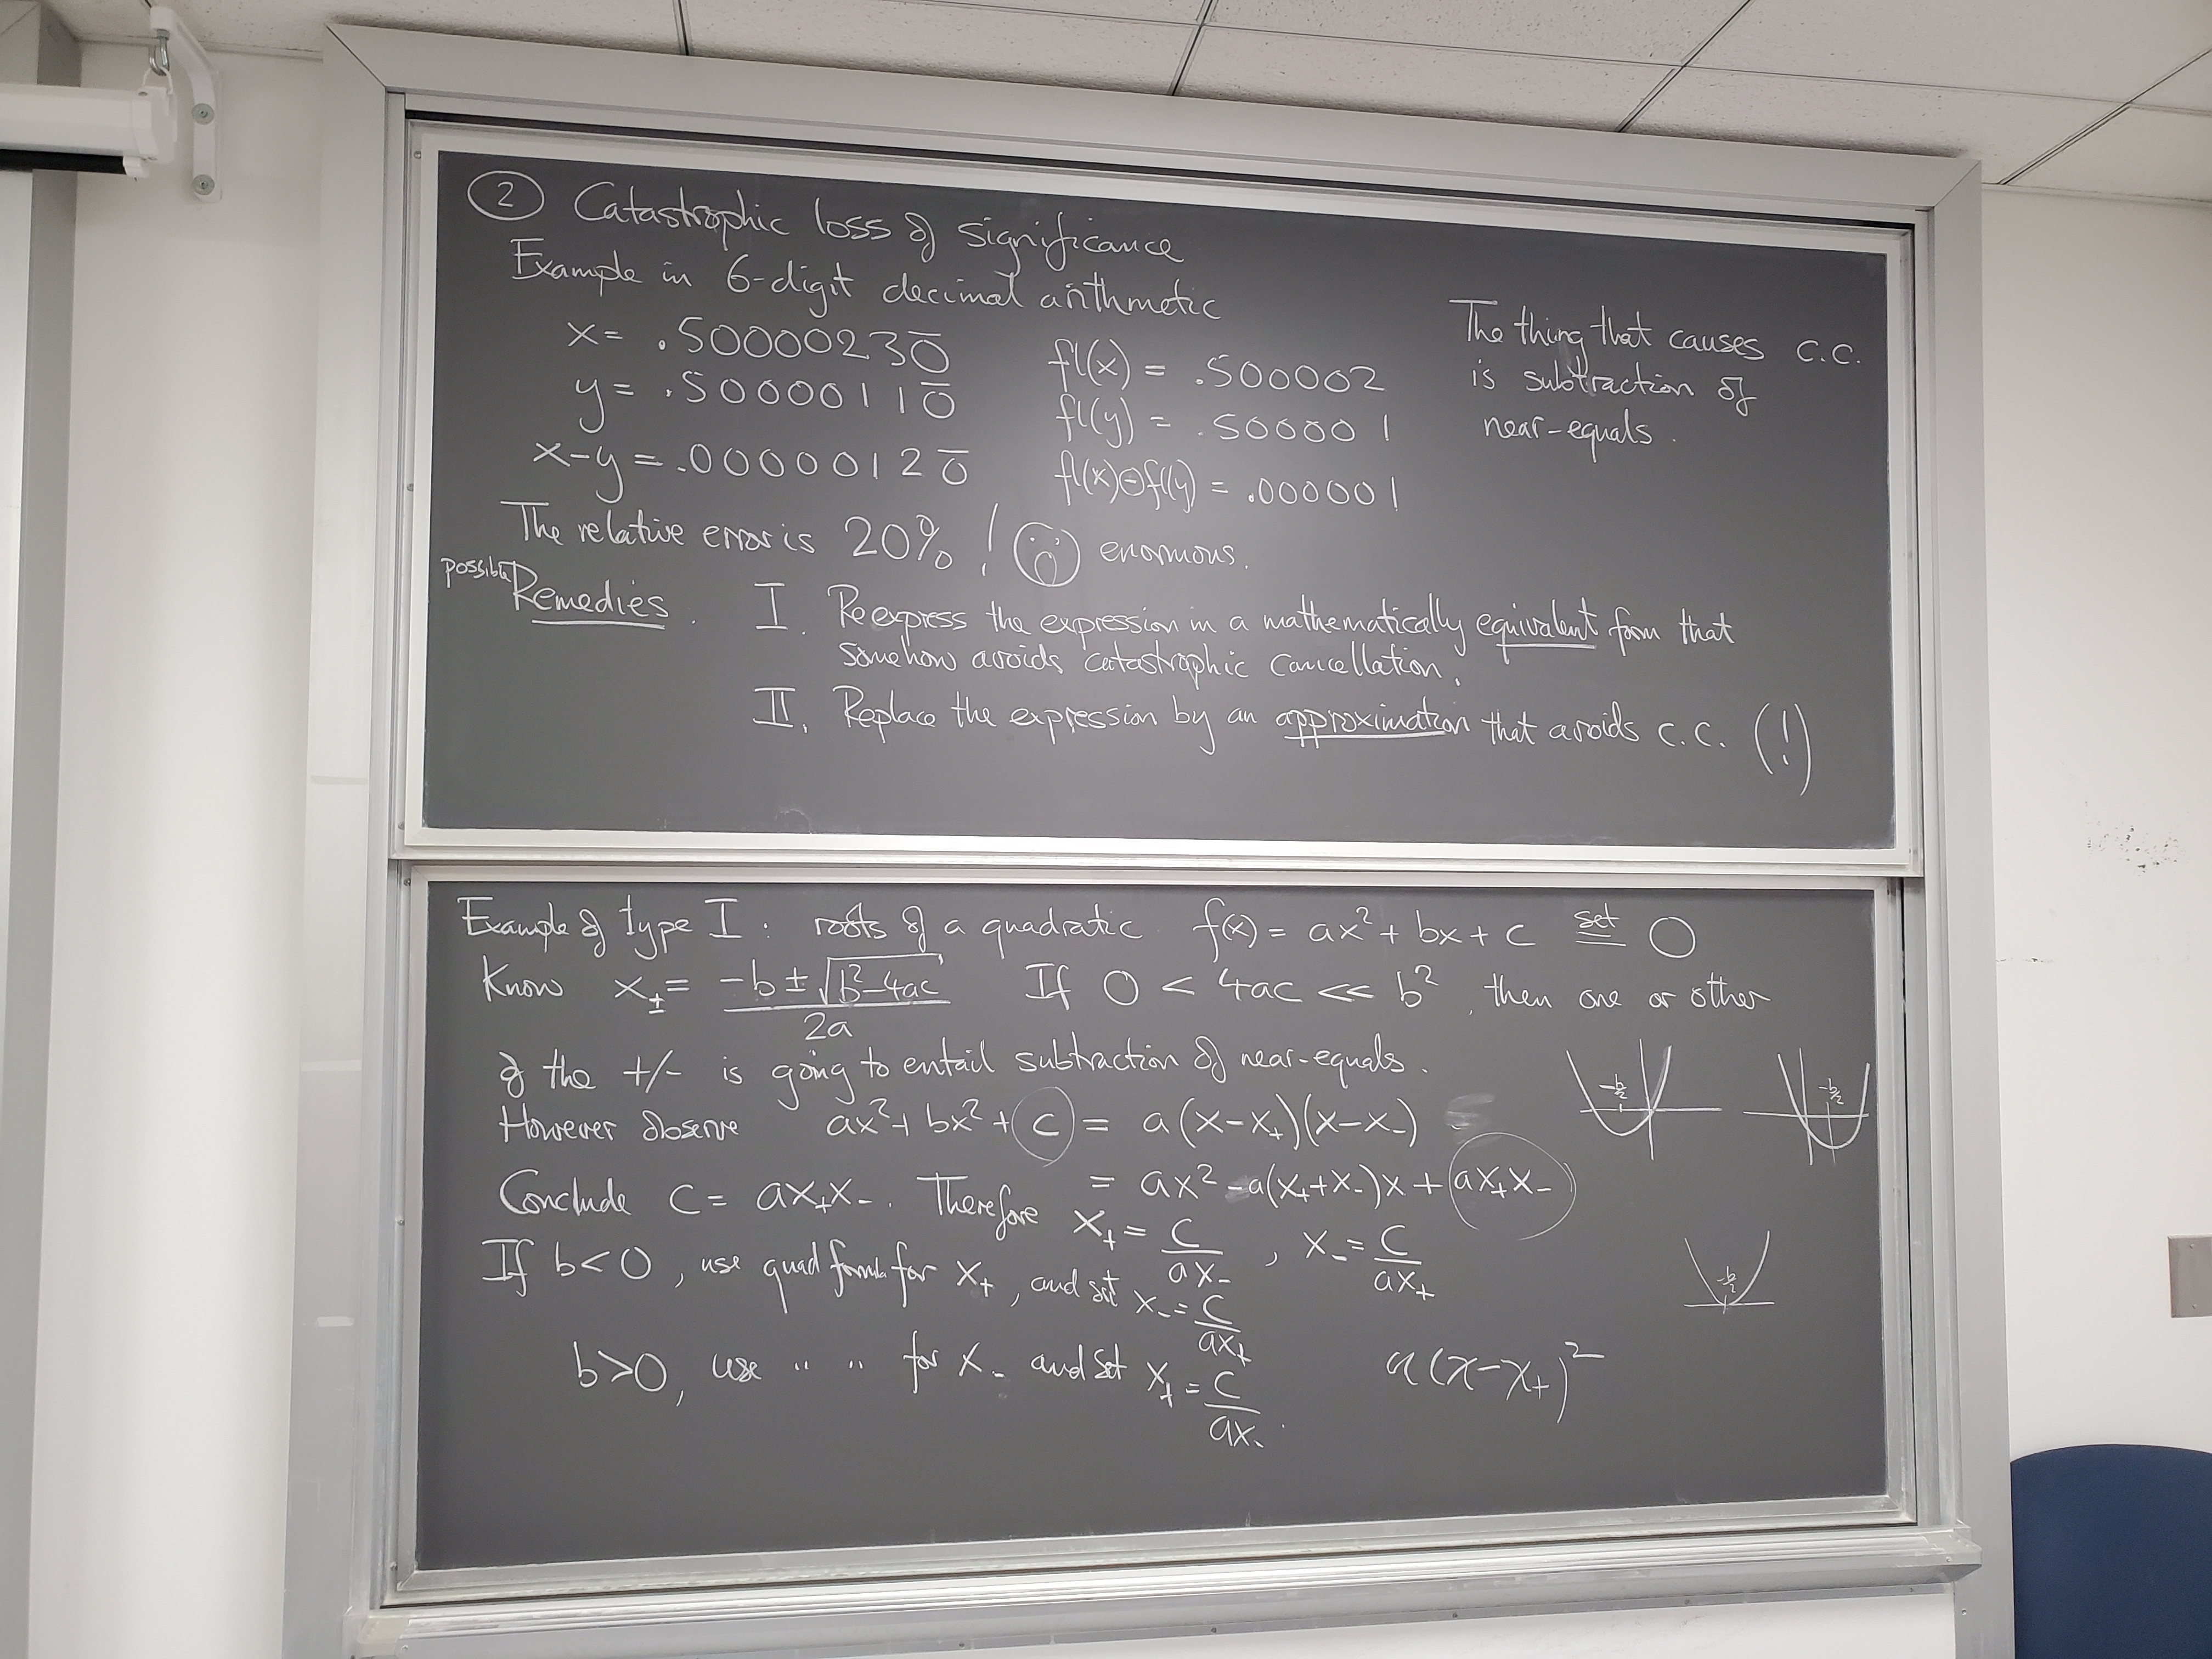 ② Catastrophic loss of significance
Example in 6-digit decimal arithmetic
x = .50000230̅
y = .50000110̅
x-y = .00000120̅
fl(x) = .500002
fl(y) = .500001
fl(x)⊖fl(y) = .000001
The thing that causes c.c.
is subtraction of
near-equals.
The relative error is 20% ! enormous.
possible Remedies. I. Reexpress the expression in a mathematically equivalent form that
somehow avoids catastrophic cancellation.
II. Replace the expression by an approximation that avoids c.c. (!)
Example of type I: roots of a quadratic f(x) = ax² + bx + c set = 0
Know x± = (-b ± √(b²-4ac)) / 2a If 0 < 4ac << b², then one or other
of the +/- is going to entail subtraction of near-equals.
However observe ax² + bx² + c = a(x-x₊)(x-x₋)
= ax² - a(x₊+x₋)x + ax₊x₋
Conclude c = ax₊x₋. Therefore x₊ = c/ax₋ , x₋ = c/ax₊
If b<0, use quad formula for x₊, and set x₋ = c/ax₊
b>0, use " " for x₋ and set x₊ = c/ax₋.
-b/2
-b/2
-b/2
a(x-x₊)²